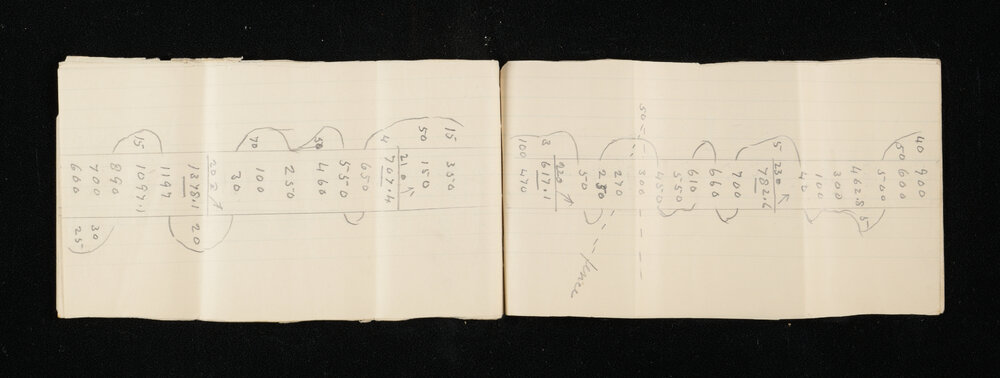 40 900
50 600
500
462.8 5
300
100
42
5 230
782.6
700
660
610
550
450
50= 300
270
250
50
fence
220
3 617.1
100 470
15 350
50 150
210
4 707.4
650
550
50 460
250
70 100
30
202
1378.1 20
1197
15 1097.1
890
700 30
600 25